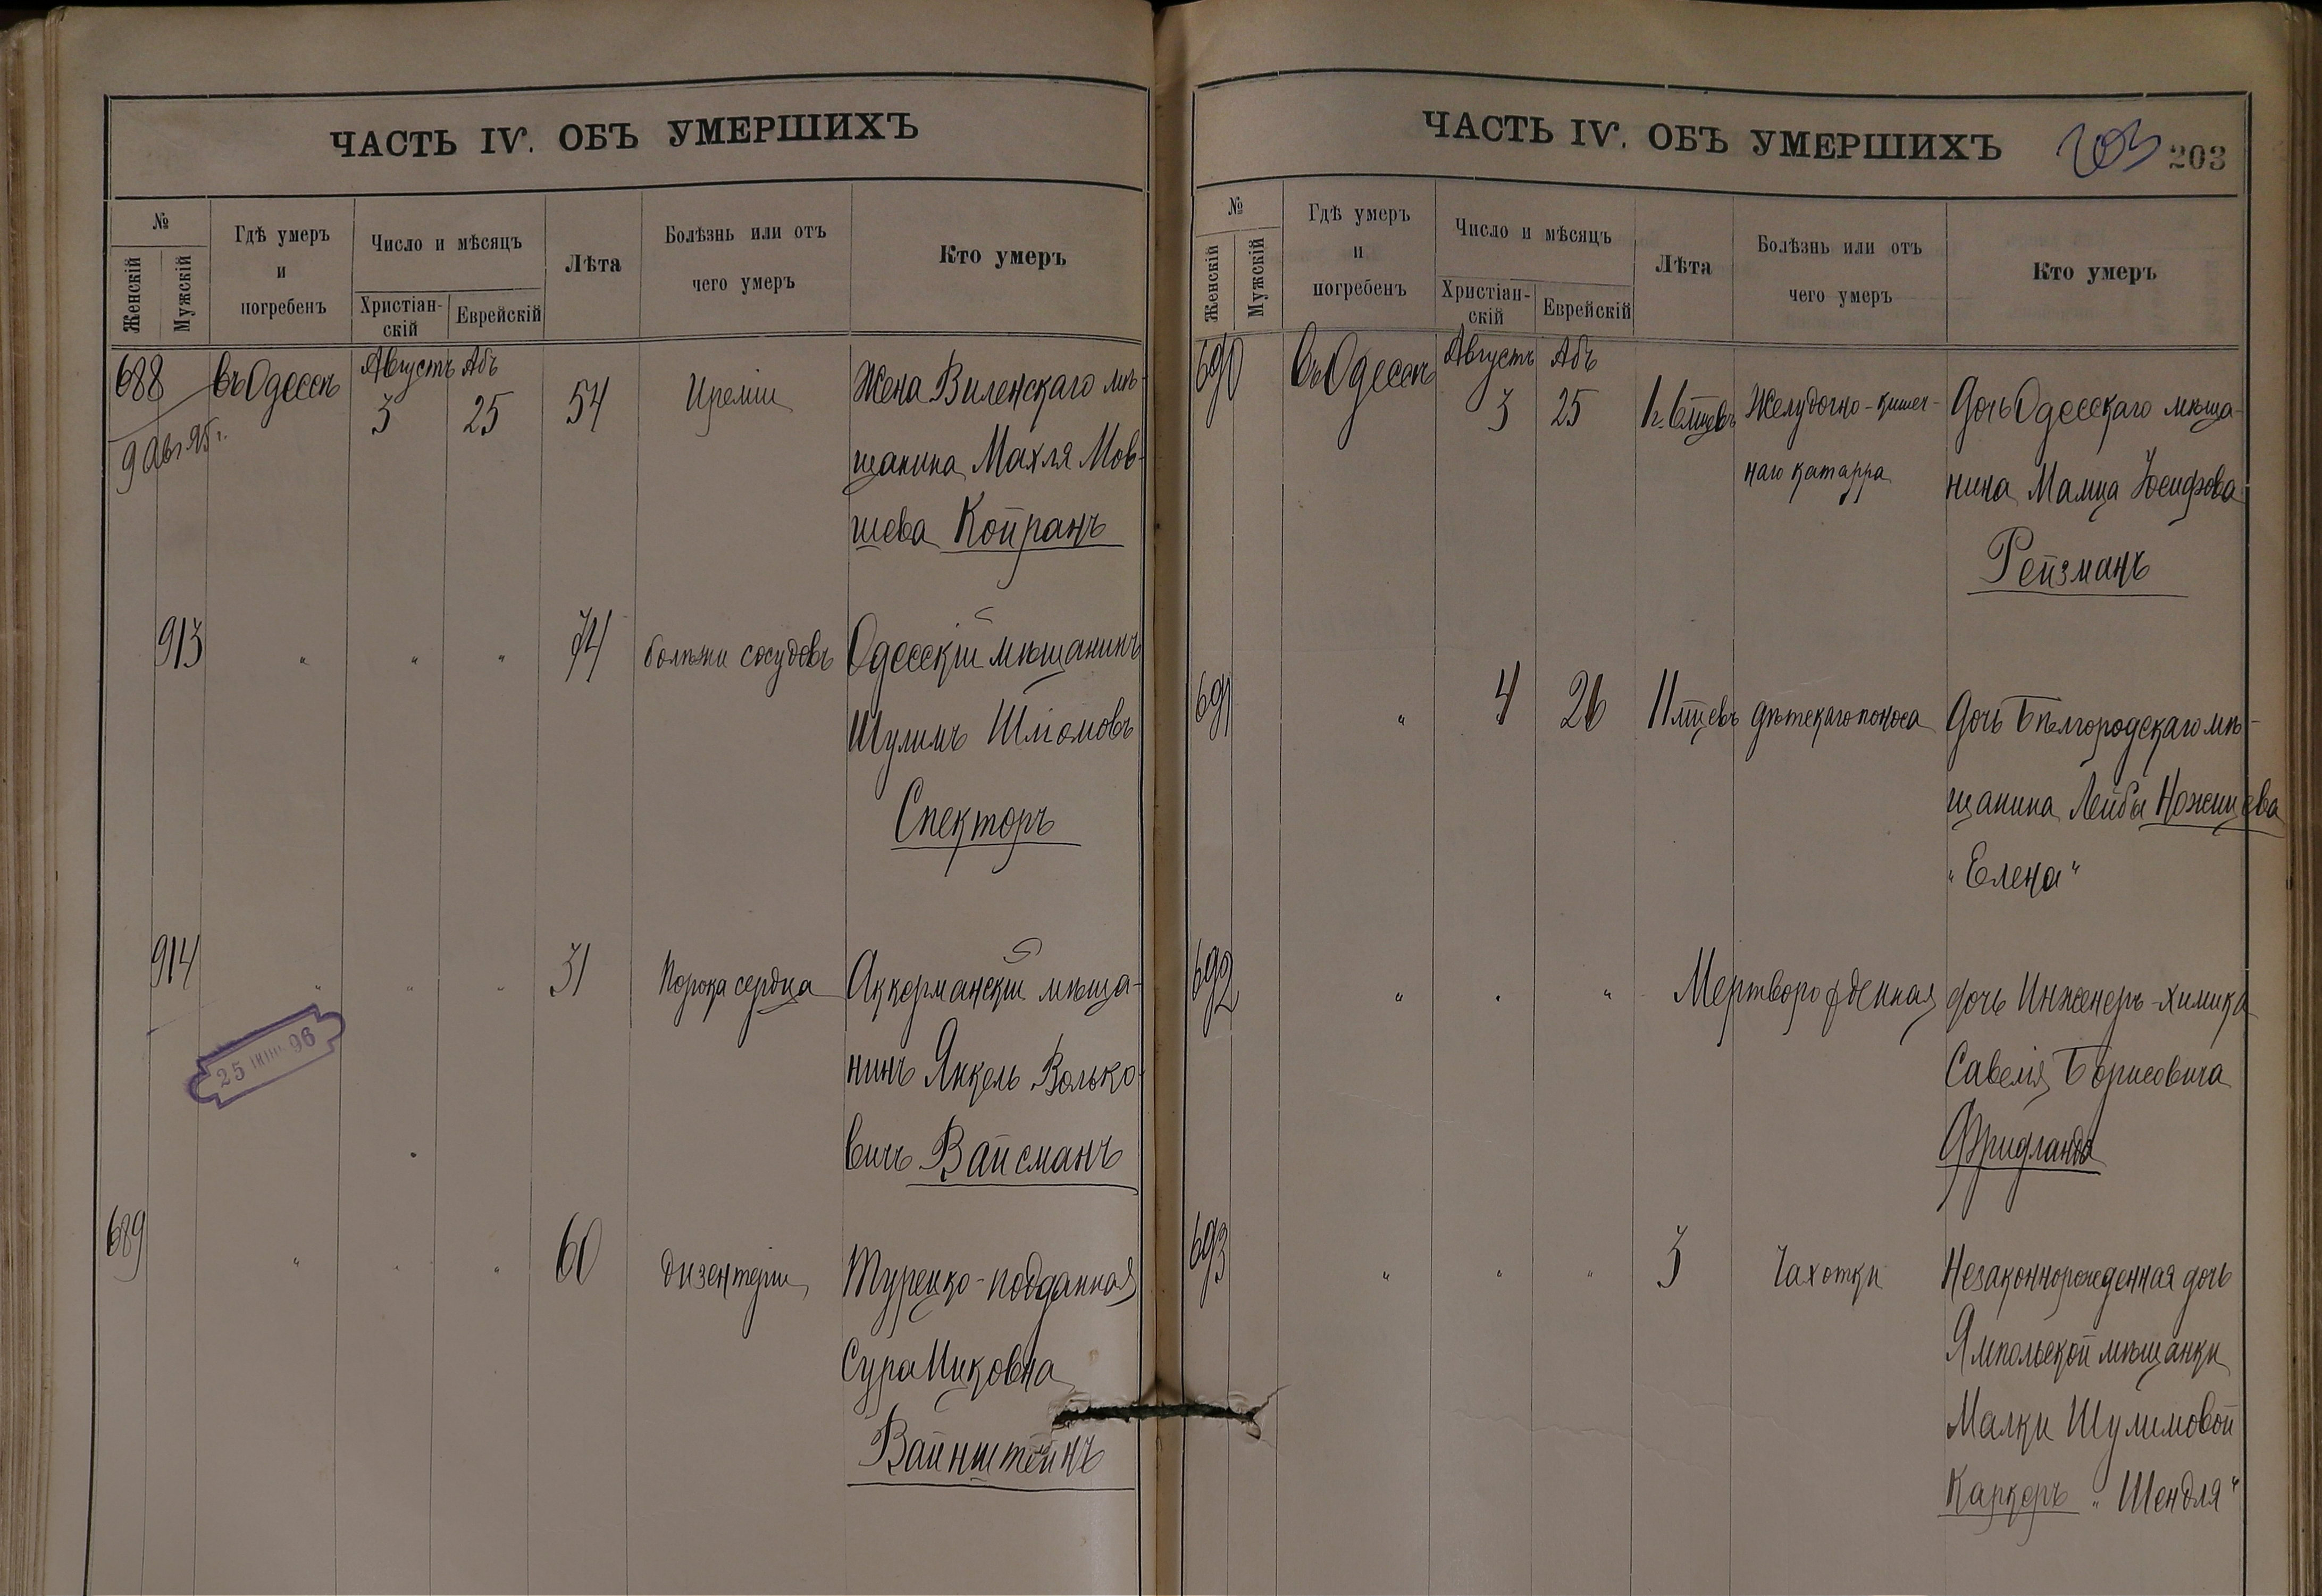 ЧАСТЬ IV. ОБЪ УМЕРШИХЪ
№
Женскій
Мужскій
Гдѣ умеръ
и
погребенъ
Число и мѣсяцъ
Христіан-
скій
Еврейскій
Лѣта
Болѣзнь или отъ
чего умеръ
Кто умеръ
688
въ Одессѣ
Августъ
3
Абъ
25
54
Уреміи
Жена Виленскаго мѣ-
щанина Махля Мов-
шева Койранъ
9 Авг 95 г.
913
"
"
"
74
болѣзни сосудовъ
Одесскій мѣщанинъ
Шулимъ Шліомовъ
Спекторъ
914
"
"
"
31
Порока сердца
Аккерманскій мѣща-
нинъ Янкель Волько-
вичъ Вайсманъ
25 96
689
"
"
"
60
дизентеріи
Турецко-подданная
Сура Ицковна
Вайнштейнъ
ЧАСТЬ IV. ОБЪ УМЕРШИХЪ
203
203
№
Женскій
Мужскій
Гдѣ умеръ
и
погребенъ
Число и мѣсяцъ
Христіан-
скій
Еврейскій
Лѣта
Болѣзнь или отъ
чего умеръ
Кто умеръ
690
въ Одессѣ
Августъ
3
Абъ
25
1 г. 6 мцевъ
Желудочно-кишеч-
наго катарра
Дочь Одесскаго мѣща-
нина Маица Іосифова
Рейзманъ
691
"
4
26
11 мцевъ
дѣтскаго поноса
Дочь Бѣлгородскаго мѣ-
щанина Лейбы Ножицева
"Елена"
692
"
"
"
Мертворожденная
дочь Инженеръ-химика
Савелія Борисовича
Фридланда
693
"
"
"
3
Чахотки
Незаконнорожденная дочь
Ямпольской мѣщанки
Малки Шулимовой
Каркеръ "Шендля"